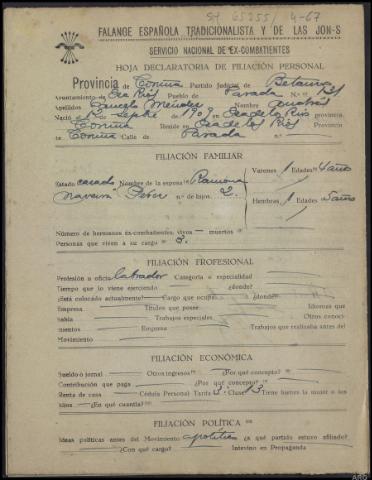 FALANGE ESPAÑOLA TRADICIONALISTA Y DE LAS JON-S
SERVICIO NACIONAL DE EX-COMBATIENTES
HOJA DECLARATORIA DE FILIACIÓN PERSONAL
Provincia de Coruña Partido Judicial de Betanzos
Ayuntamiento de Oza Rios Pueblo de Parada N.º
Apellidos Méndez Nombre Andrés
Nació de Sepbre de 190 en Oza de los Rios provincia
Coruña Reside en Oza de los Rios Provincia
de Coruña Calle de Parada n.º
FILIACIÓN FAMILIAR
Varones 1 Edades 4 años
Estado casado Nombre de la esposa Ramona
n.º de hijos 2. Hembras 1 Edades 5 años
Número de hermanos ex-combatientes, vivos — muertos
Personas que viven a su cargo 3.
FILIACIÓN PROFESIONAL
Profesión u oficio Labrador Categoría o especialidad
Tiempo que lo viene ejerciendo ¿dónde?
¿Está colocado actualmente? Cargo que ocupa ¿dónde?
Empresa Títulos que posee Idiomas que
habla Trabajos especiales Otros conoci-
mientos Empresa Trabajos que realizaba antes del
Movimiento
FILIACIÓN ECONÓMICA
Sueldo o jornal — Otros ingresos ¿Por qué concepto?
Contribución que paga ¿Por qué concepto?
Renta de casa Cédula Personal Tarifa 3ª Clase 13 Tiene bienes la mujer o los
hijos ¿En qué cuantía?
FILIACIÓN POLÍTICA
Ideas políticas antes del Movimiento apolítico ¿a qué partido estuvo afiliado?
¿Con qué cargo? Intervino en Propaganda